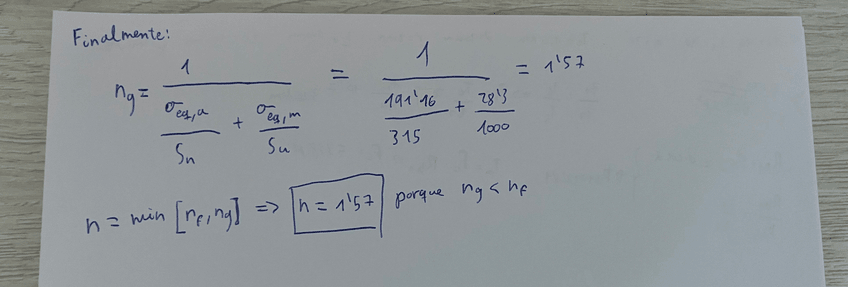 Finalmente:
n_g = 1 / (σ_eq,a / S_n + σ_eq,m / S_u) = 1 / (191'16 / 315 + 28'3 / 1000) = 1'57
n = min [n_f, n_g] => n = 1'57 porque n_g < n_f